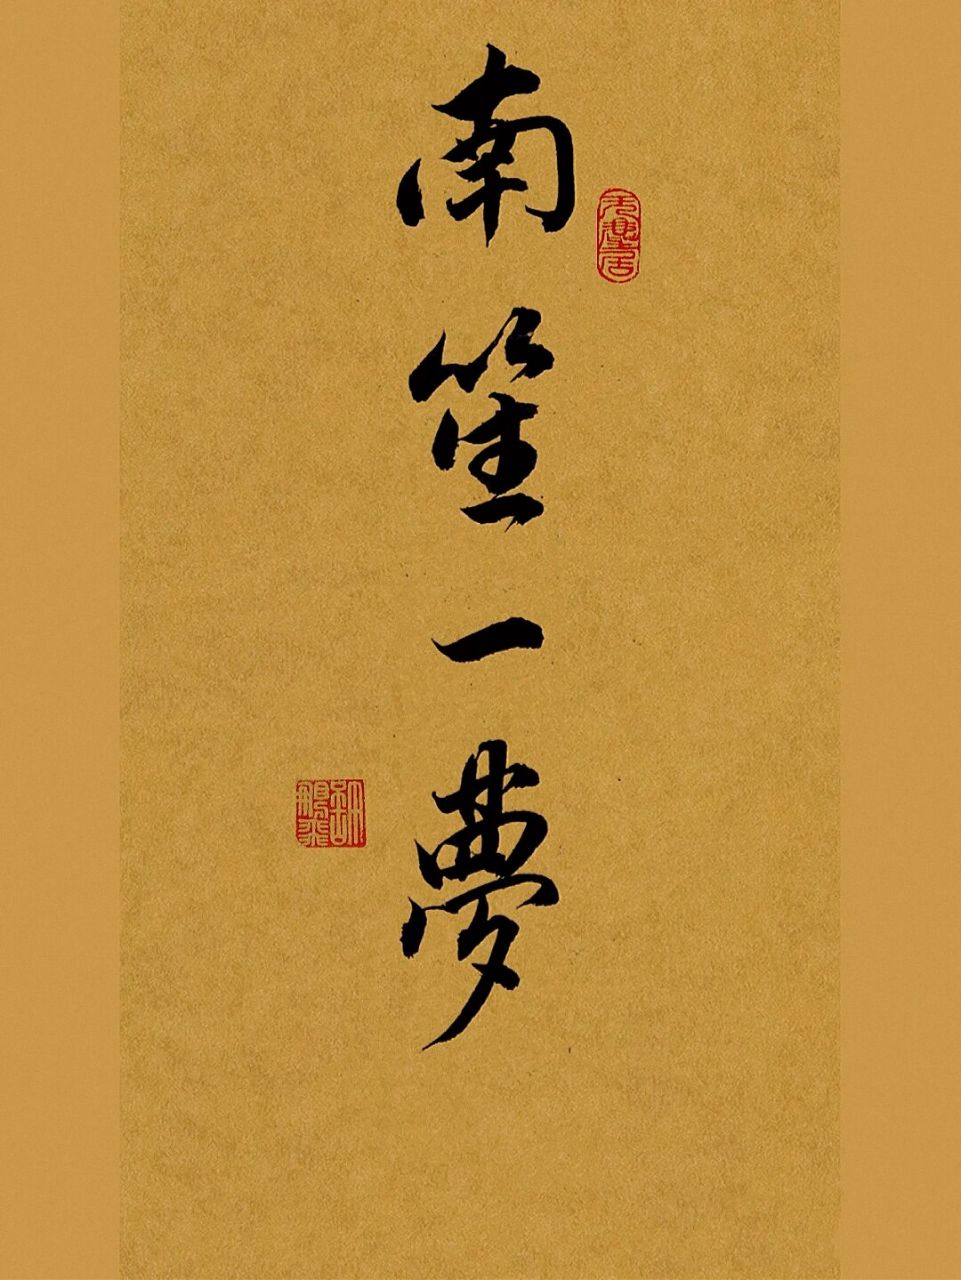 南笙一夢